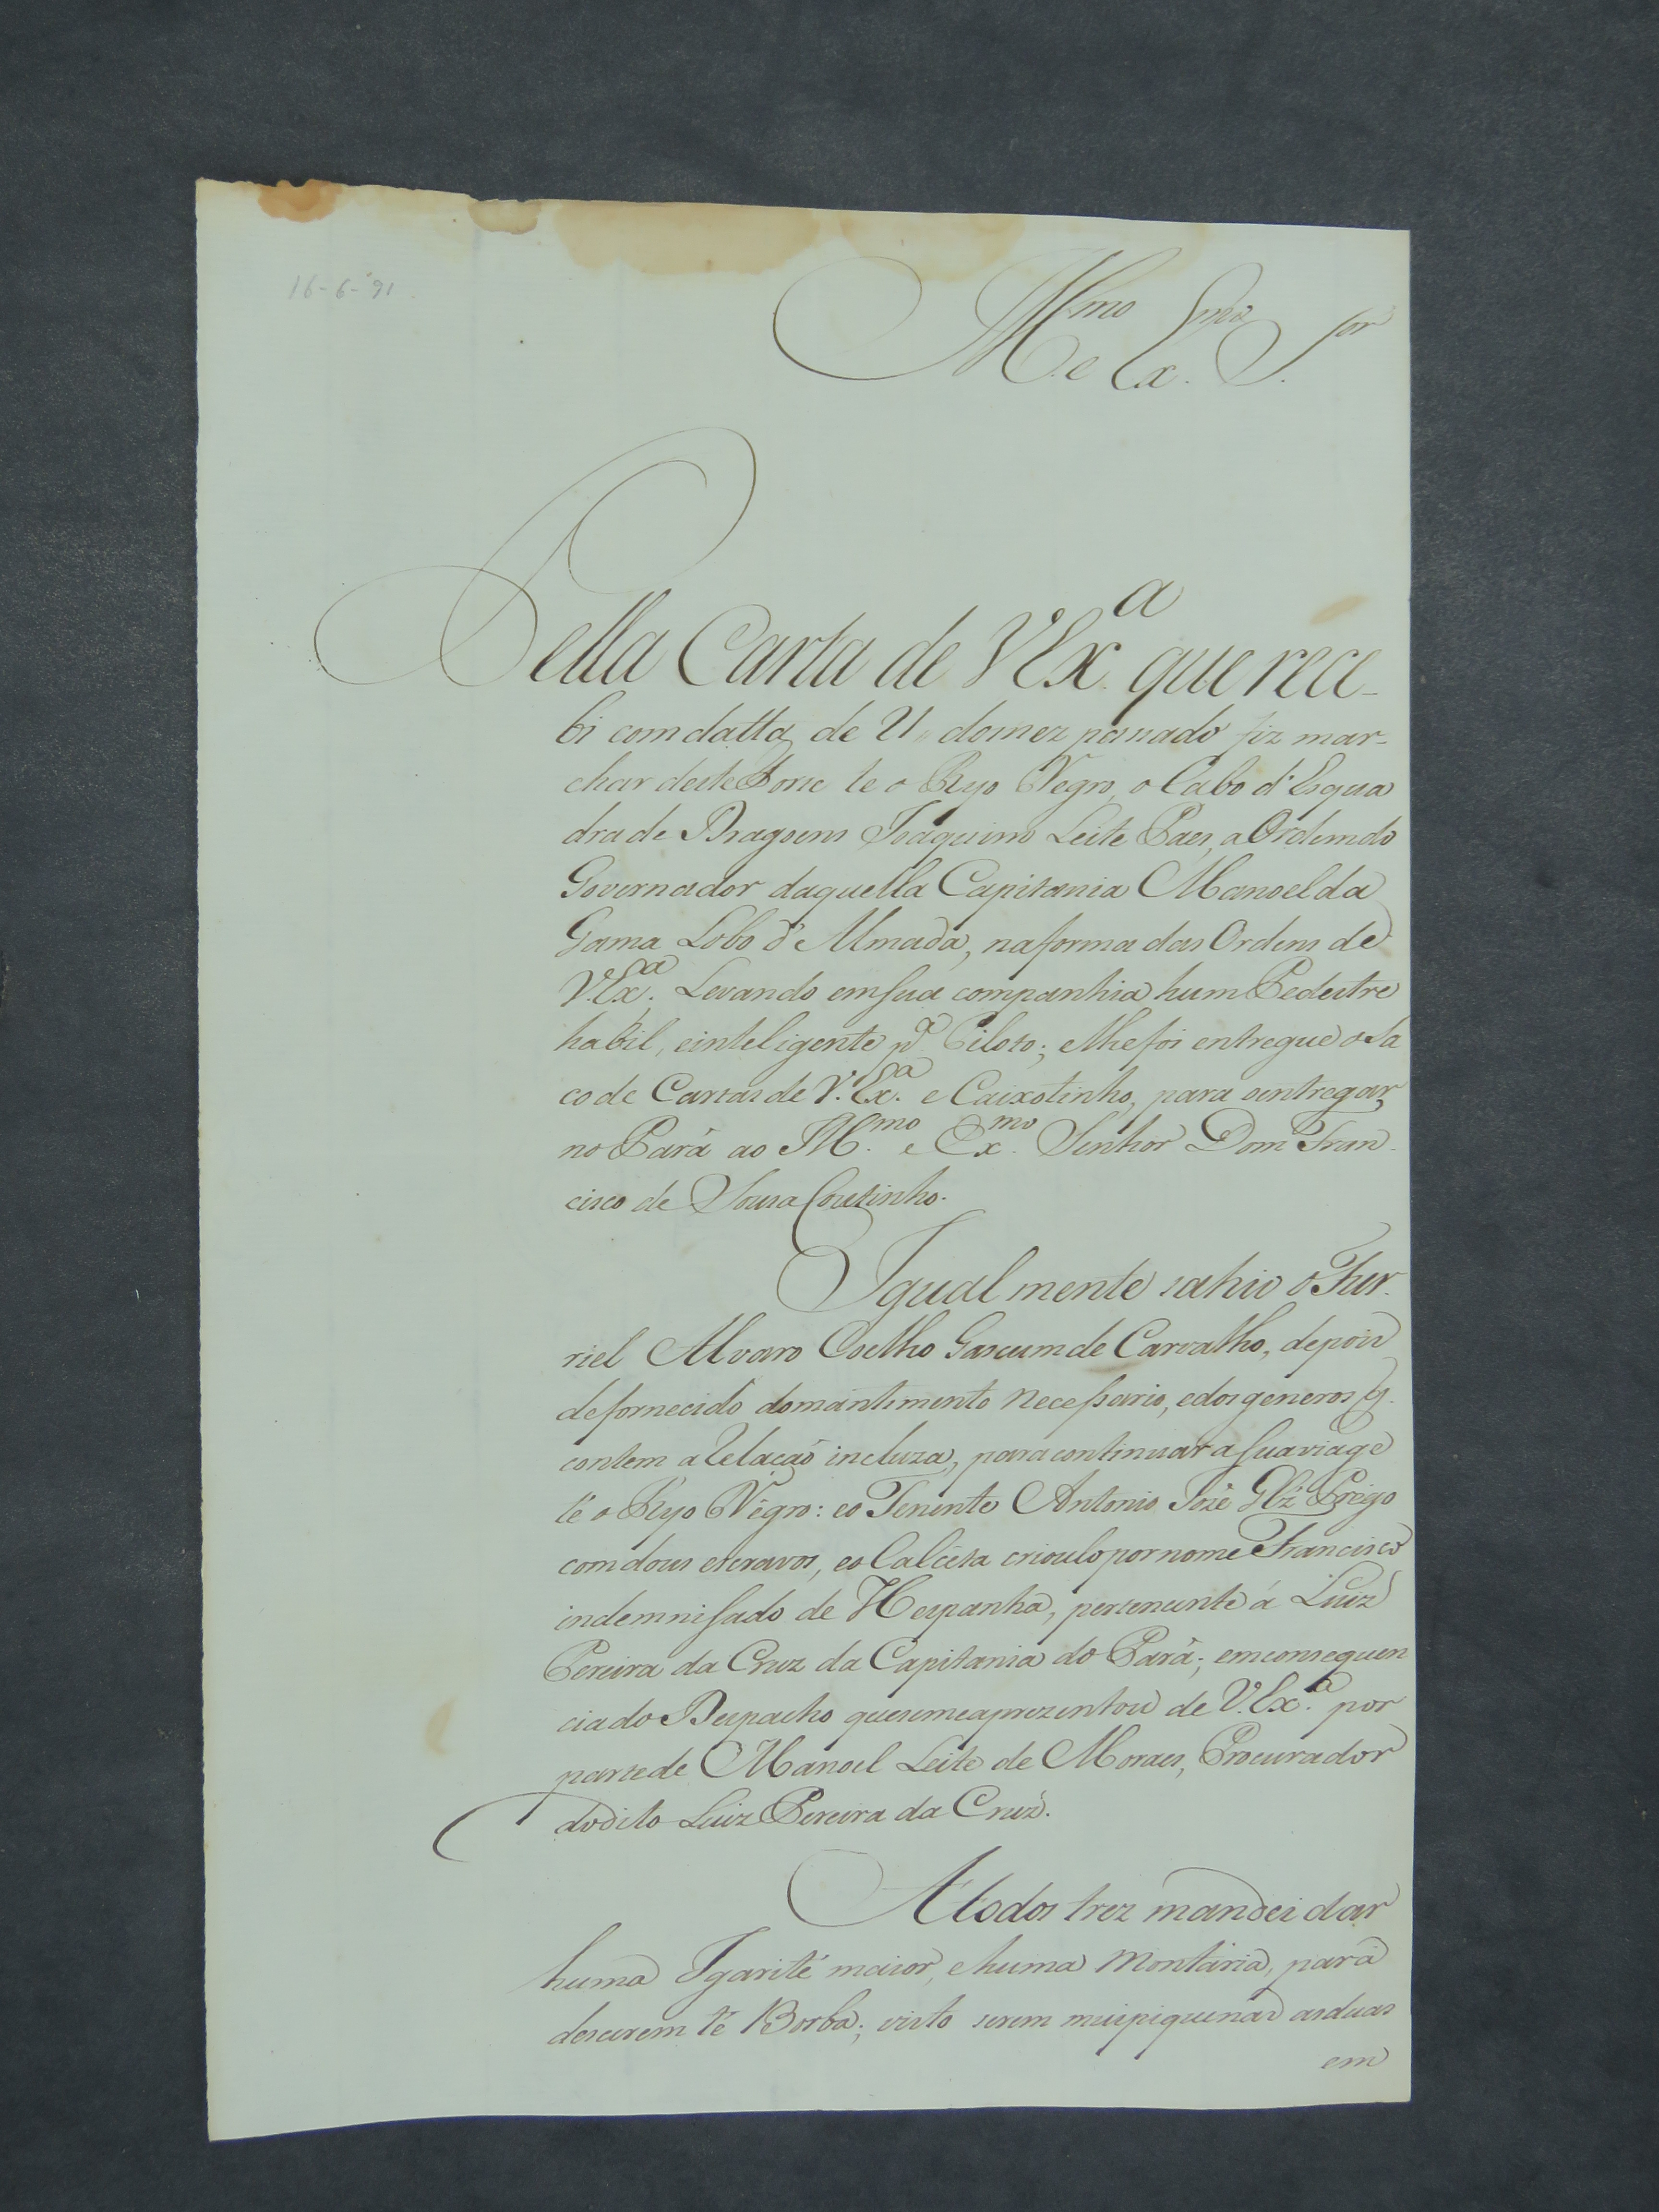 16-6-'91
Ill.mo e Ex.mo S.or
Pella Carta de VEx.a que rece-
bi com datta de 21 do mez passado fiz mar-
char deste Forte te o Ryo Negro, o Cabo d'Esqua
dra de Dragoens Joaquim Leite Paes, a Ordem do
Governador daquella Capitania Manoel da
Gama Lobo d'Almada, na forma das Ordens de
V.Ex.a Levando em sua companhia hum Pedestre
habil, e inteligente p.a Piloto; e lhe foi entregue o Sa
co de Cartas de V.Ex.a e Caixotinho, para o entregar
no Pará ao Ill.mo e Ex.mo Senhor Dom Fran-
cisco de Sousa Coutinho.
Igualmente sahio o Fur-
riel Alvaro Coelho Gascum de Carvalho, depois
de fornecido do mantimento necessario, e dos generos q.
contem a Relação incluza, para continuar a sua viage
té o Ryo Negro: e o Tenente Antonio Jozé Glz Prêgo
com dous escravos, e o Calcêta crioulo por nome Francisco
indemnisado de Hespanha, pertencente á Luiz
Pereira da Cruz da Capitania do Pará; em consequen
cia do Despacho que se me aprezentou de V.Ex.a por
parte de Manoel Leite de Moraes, Procurador
do dito Luiz Pereira da Cruz.
A todos trez mandei dar
huma Igarité maior, e huma Montaria, para
descerem té Borba; visto serem mui piquenas as duas
em